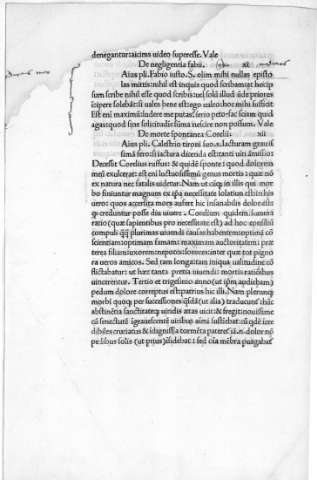 denegantur: aicimus uideo superesse. Vale
De negligentia fabii. xi
Aius pli. Fabio iusto .S. olim mihi nullas episto
las mittis: nihil est inquis quod scribam: at hoc ip
sum scribe nihil esse quod scribas: uel solū illud ūde priores
īcipere solebāt: si uales bene est: ego ualeo: hoc mihi sufficit
Est eni maximū: ludere me putas: serio peto: fac sciam quid
agias: quod sine solicitudine sūma nescire non possum. Vale
De morte spontanea Corelii. xii
Aius pli. Calestrio tironi suo .s. iacturam grauis
simā feci: si iactura dicenda est tanti uiri amissio:
Decessit Corelius rufus: & quidē sponte: quod dolorem
meū exulcerat: est eni luctuosissimū genus mortis: quae nō
ex natura nec fatalis uidetur. Nam ut cūq; in illis qui mor
bo finiuntur magnum ex ipsa necessitate solatium est: in his
uero: quos accersita mors aufert hic insanabilis dolor est:
qr creduntur posse diu uiuere. Corelium quidem summa
ratio (quae sapientibus pro necessitate est) ad hoc cōsiliū
compulit q̄q̄ plurimas uiuendi causas habentem: optimā cō
scientiam: optimam famam: maximam auctoritatem: prae
terea filiam: uxorem: nepotem: sorores: inter quae tot pigno
ra ueros amicos. Sed tam longa: tam iniqua ualitudine cō
flictabatur: ut haec tanta pretia uiuendi: mortis rationibus
uincerentur. Tertio et trigesimo anno (ut ipsū audiebam)
pedum dolore correptus est: patrius hic illi. Nam plerunq;
morbi quoq; per successiones q̄dā (ut alia) traducunt̄ hūc
abstinētia sanctitate q; uiridis aetas uicit: & fregit: nouissime
cū senectute īgrauescentē uiribus animi sustinebat: cū q̄dē īcre
dibiles cruciatus & īdignissīa tormēta pateret̄
pedibus solis (ut prius) īsidebat: sed oīa mēbra puagabat̄